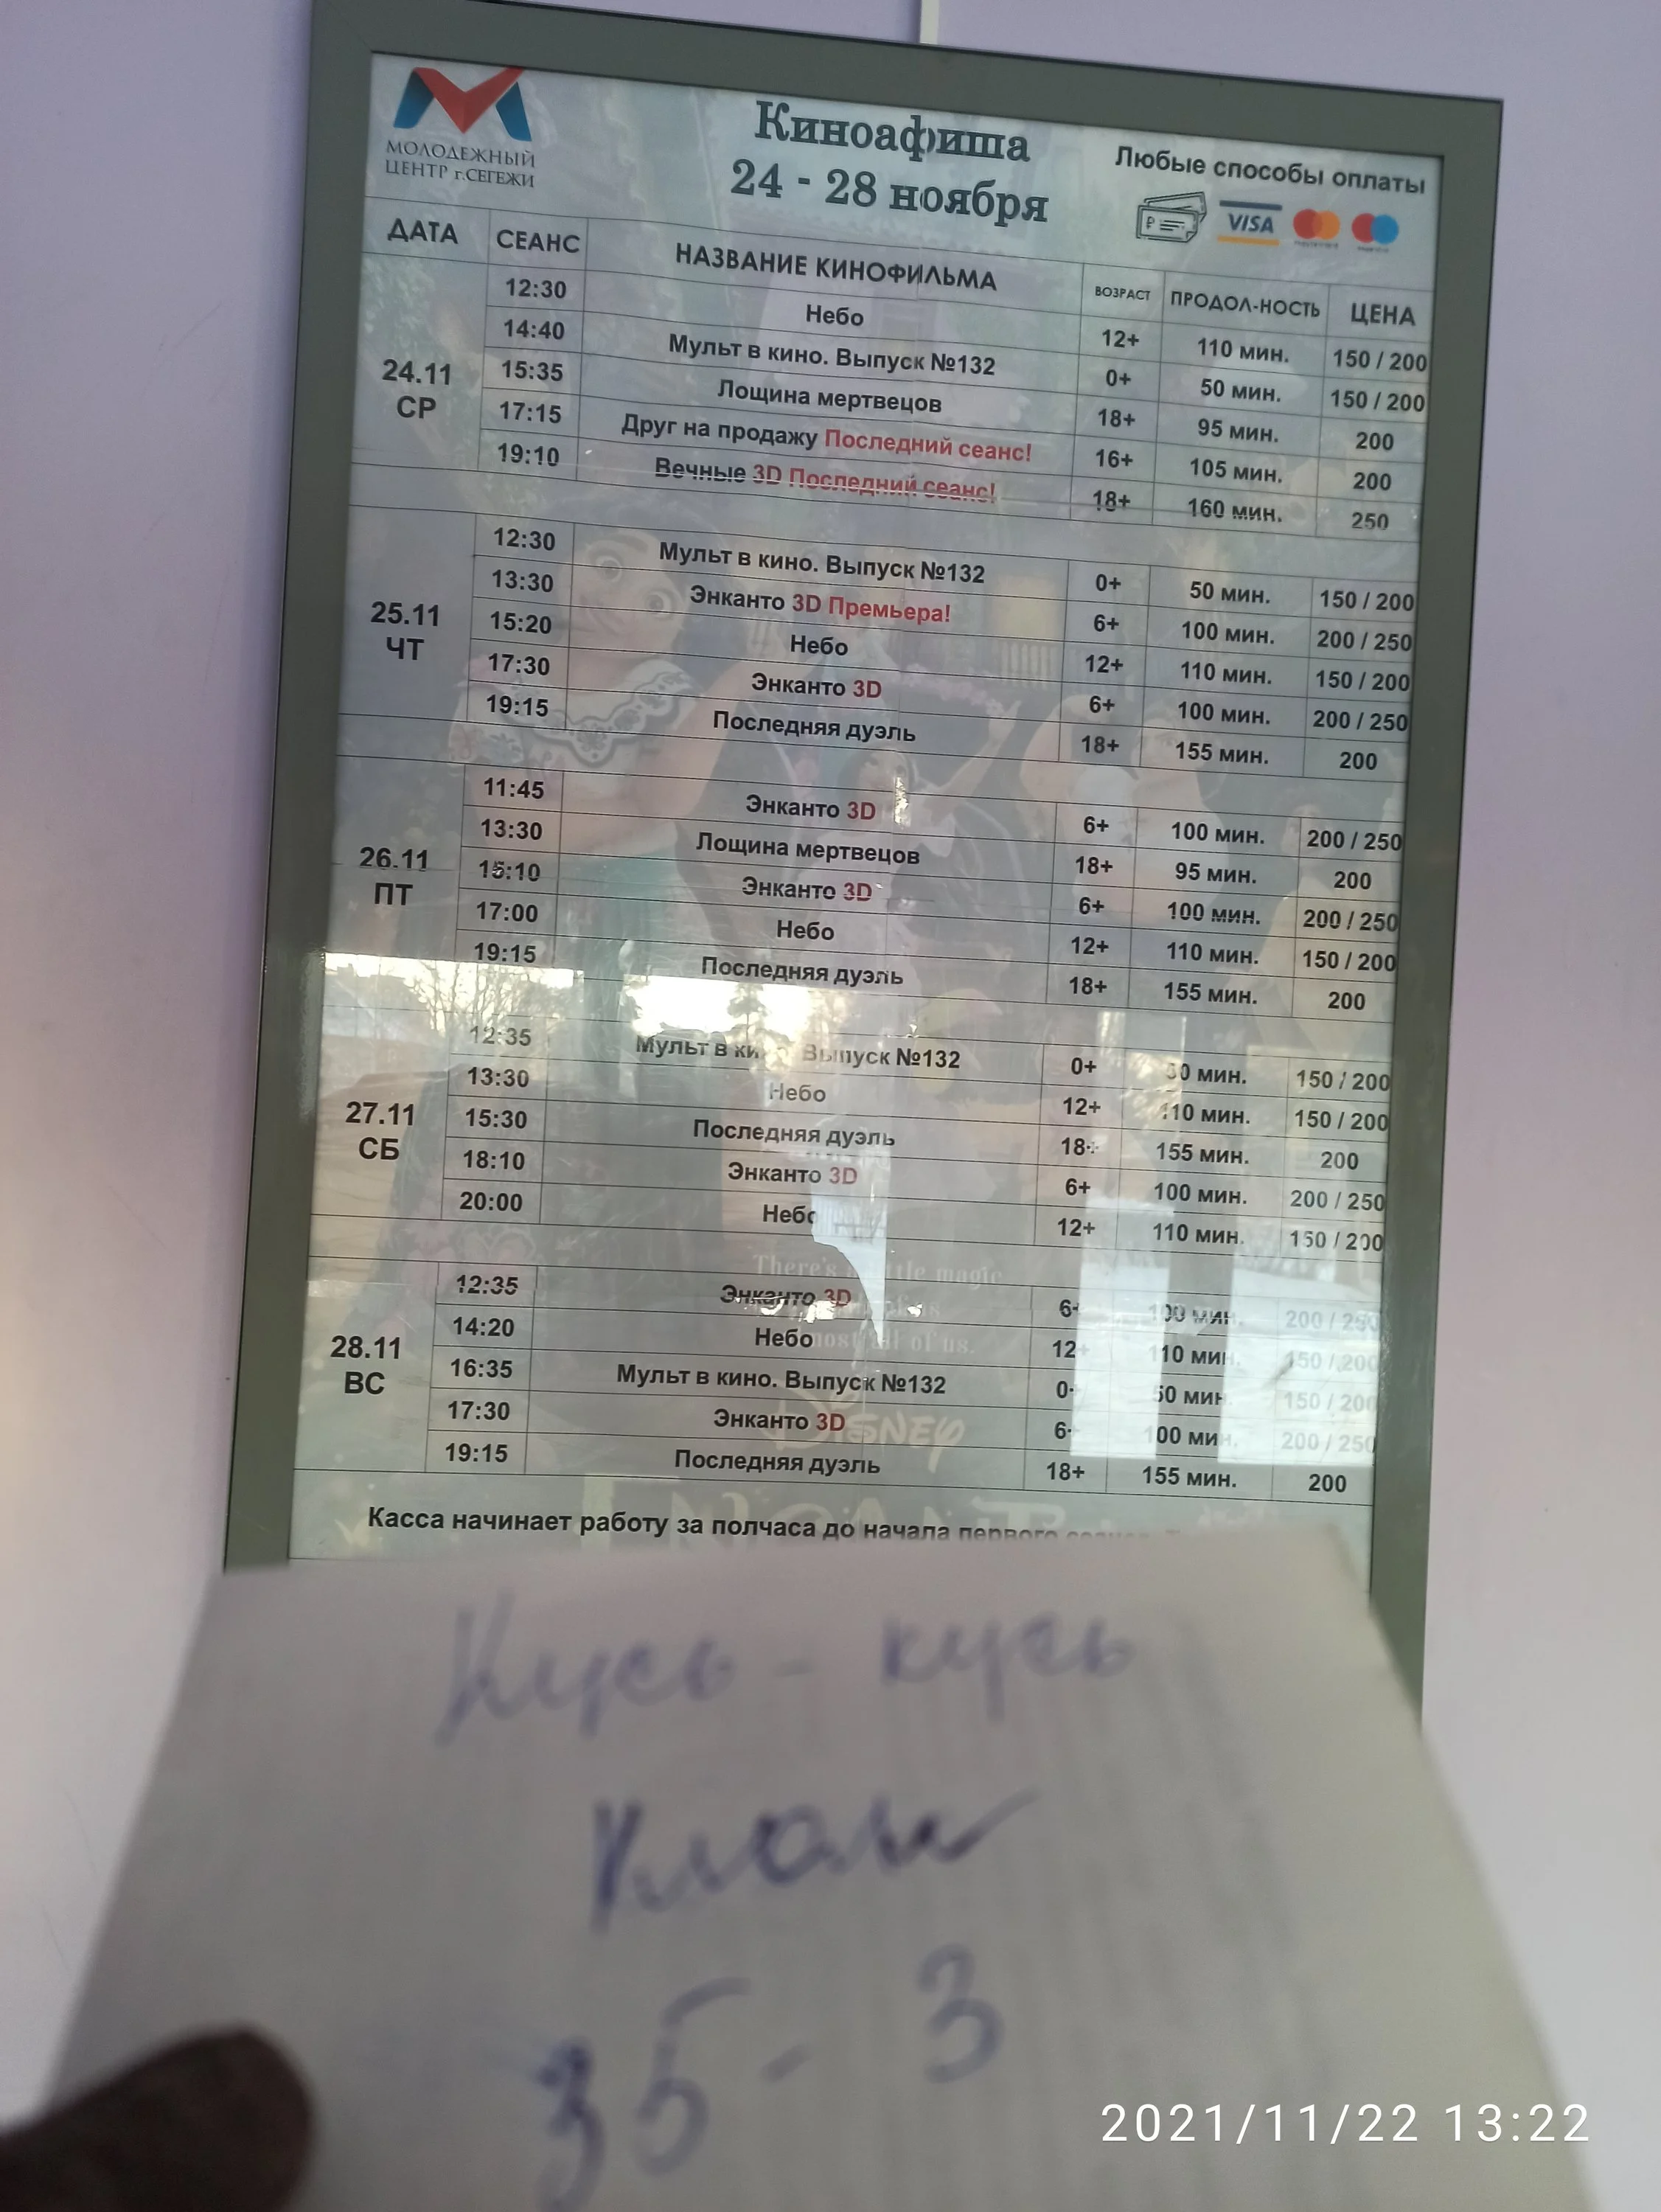 МОЛОДЕЖНЫЙ
ЦЕНТР г.СЕГЕЖИ
Киноафиша
24 - 28 ноября
Любые способы оплаты
VISA
ДАТА СЕАНС НАЗВАНИЕ КИНОФИЛЬМА ВОЗРАСТ ПРОДОЛ-НОСТЬ ЦЕНА
24.11
СР
12:30 Небо 12+ 110 мин. 150 / 200
14:40 Мульт в кино. Выпуск №132 0+ 50 мин. 150 / 200
15:35 Лощина мертвецов 18+ 95 мин. 200
17:15 Друг на продажу Последний сеанс! 16+ 105 мин. 200
19:10 Вечные 3D Последний сеанс! 18+ 160 мин. 250
25.11
ЧТ
12:30 Мульт в кино. Выпуск №132 0+ 50 мин. 150 / 200
13:30 Энканто 3D Премьера! 6+ 100 мин. 200 / 250
15:20 Небо 12+ 110 мин. 150 / 200
17:30 Энканто 3D 6+ 100 мин. 200 / 250
19:15 Последняя дуэль 18+ 155 мин. 200
26.11
ПТ
11:45 Энканто 3D 6+ 100 мин. 200 / 250
13:30 Лощина мертвецов 18+ 95 мин. 200
15:10 Энканто 3D 6+ 100 мин. 200 / 250
17:00 Небо 12+ 110 мин. 150 / 200
19:15 Последняя дуэль 18+ 155 мин. 200
27.11
СБ
12:35 Мульт в кино. Выпуск №132 0+ 50 мин. 150 / 200
13:30 Небо 12+ 110 мин. 150 / 200
15:30 Последняя дуэль 18+ 155 мин. 200
18:10 Энканто 3D 6+ 100 мин. 200 / 250
20:00 Небо 12+ 110 мин. 150 / 200
28.11
ВС
12:35 Энканто 3D 6+ 100 мин. 200 / 250
14:20 Небо 12+ 110 мин. 150 / 200
16:35 Мульт в кино. Выпуск №132 0+ 50 мин. 150 / 200
17:30 Энканто 3D 6+ 100 мин. 200 / 250
19:15 Последняя дуэль 18+ 155 мин. 200
There's a little magic
of us.
DISNEY
Касса начинает работу за полчаса до начала первого
Кусь - кусь
35 - 3
2021/11/22 13:22